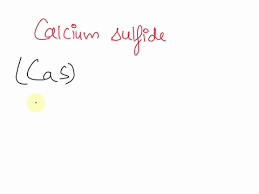 Calcium sulfide
(Cas)